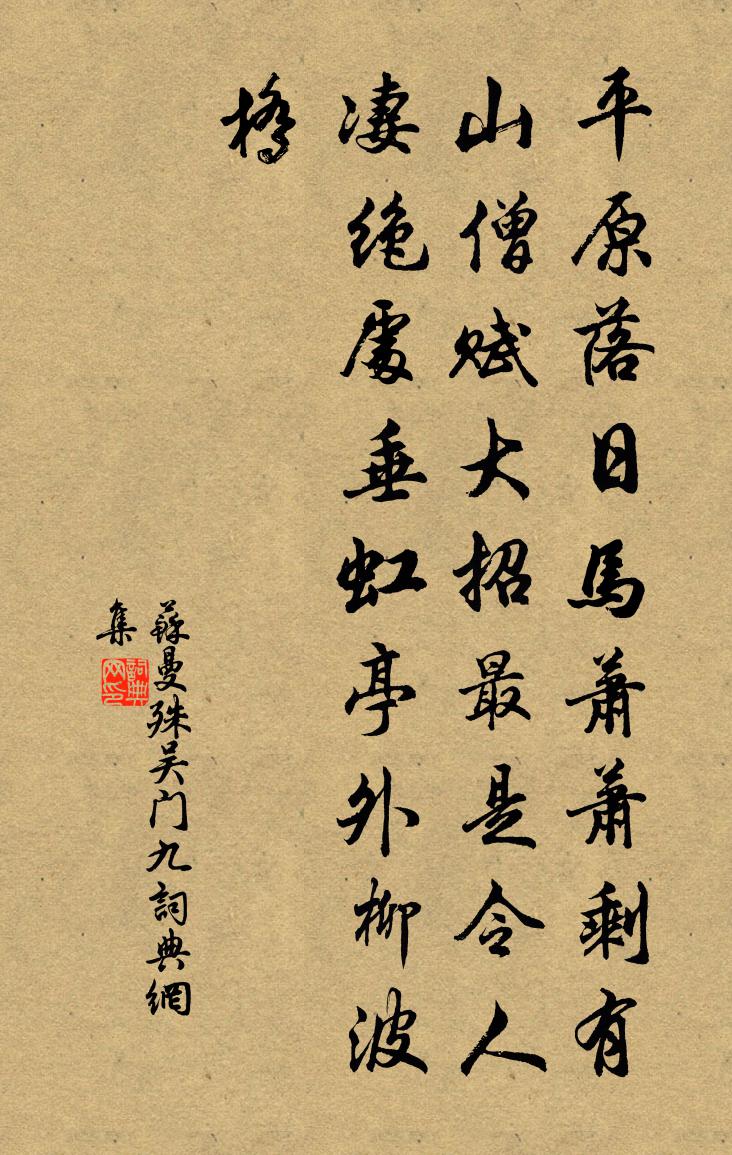 平原落日馬蕭蕭剩有
山僧賦大招最是令人
凄絶處垂虹亭外柳波
橋
蘇曼殊吴门九詞典網
集
詞典网印